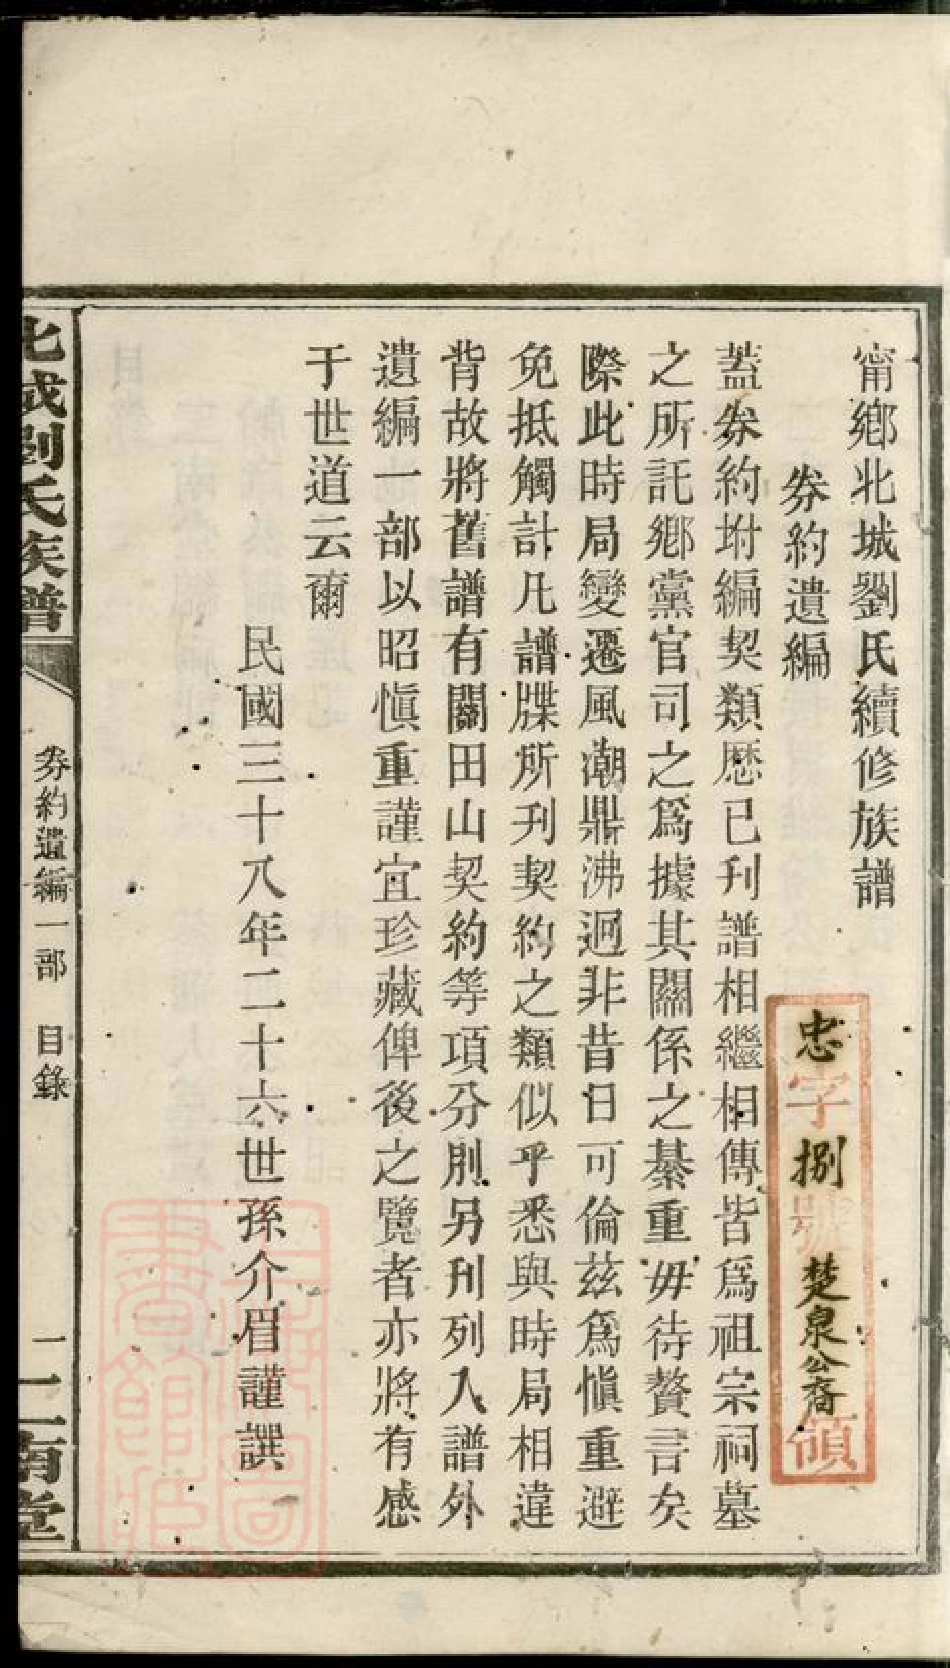 甯鄉北城劉氏續修族譜
券約遺編
忠字捌號楚泉公裔領
蓋券約坿編契類歷已刊譜相繼相傳皆爲祖宗祠墓
之所託鄉黨官司之爲據其關係之綦重毋待贅言矣
際此時局變遷風潮鼎沸迥非昔日可倫茲爲愼重避
免抵觸計凡譜牒所刋契約之類似乎悉與時局相違
背故將舊譜有關田山契約等項分別另刋列入譜外
遺編一部以昭愼重謹宜珍藏俾後之覽者亦將有感
于世道云爾
民國三十八年二十六世孫介眉謹譔
北城劉氏族譜
券約遺編一部 目錄
一
南堂